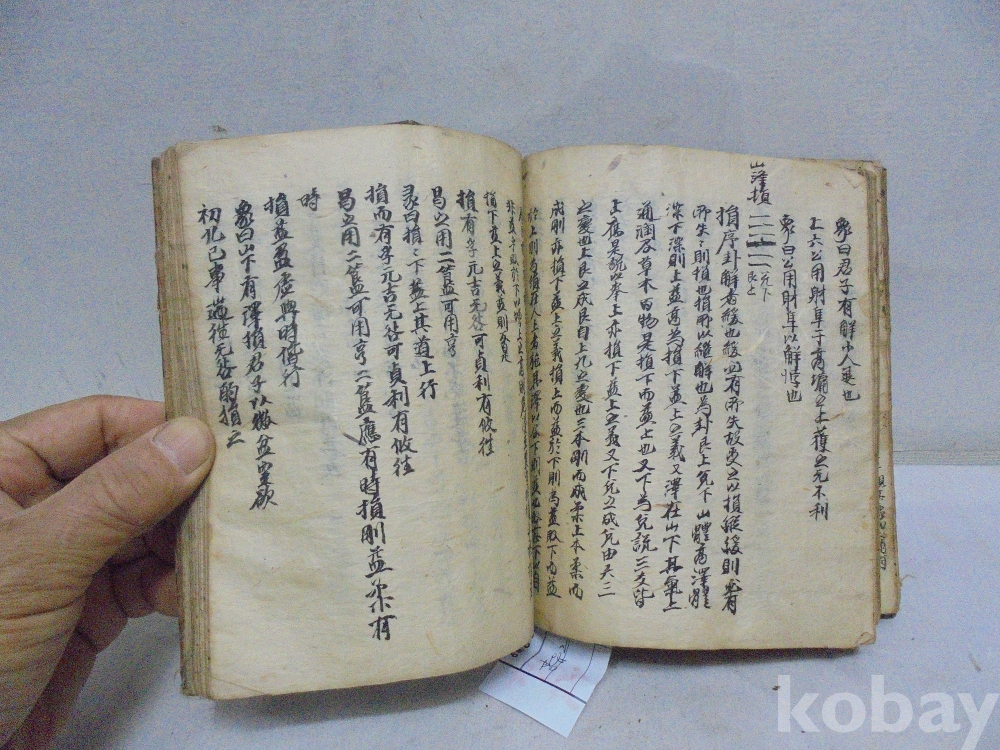 象曰君子有解小人退也
上六公用射隼于高墉之上獲之无不利
象曰公用射隼以解悖也
山澤損
兌下
艮上
損序卦解者緩也緩必有所失故受之以損縱緩則必有
所失失則損也損所以繼解也為卦艮上兌下山體高澤體
深下深則上益高為損下益上之義又澤在山下其氣上
通潤及草木百物是損下而益上也又下為兌說三爻皆
上應是說以奉上亦損下益上之義又下兌之成兌由六三
之變也上艮之成艮自上九之變也三本剛而成柔上本柔而
成剛亦損下益上之義損上而益於下則為益取下而益
於上則為損在人上者施其澤以及下則益也取其下以自
損下益上之義益則反是
損有孚元吉无咎可貞利有攸往
曷之用二簋可用享
彖曰損損下益上其道上行
損而有孚元吉无咎可貞利有攸往
曷之用二簋可用享二簋應有時損剛益柔有
時
損益盈虛與時偕行
象曰山下有澤損君子以懲忿窒欲
初九已事遄往无咎酌損之
kobay